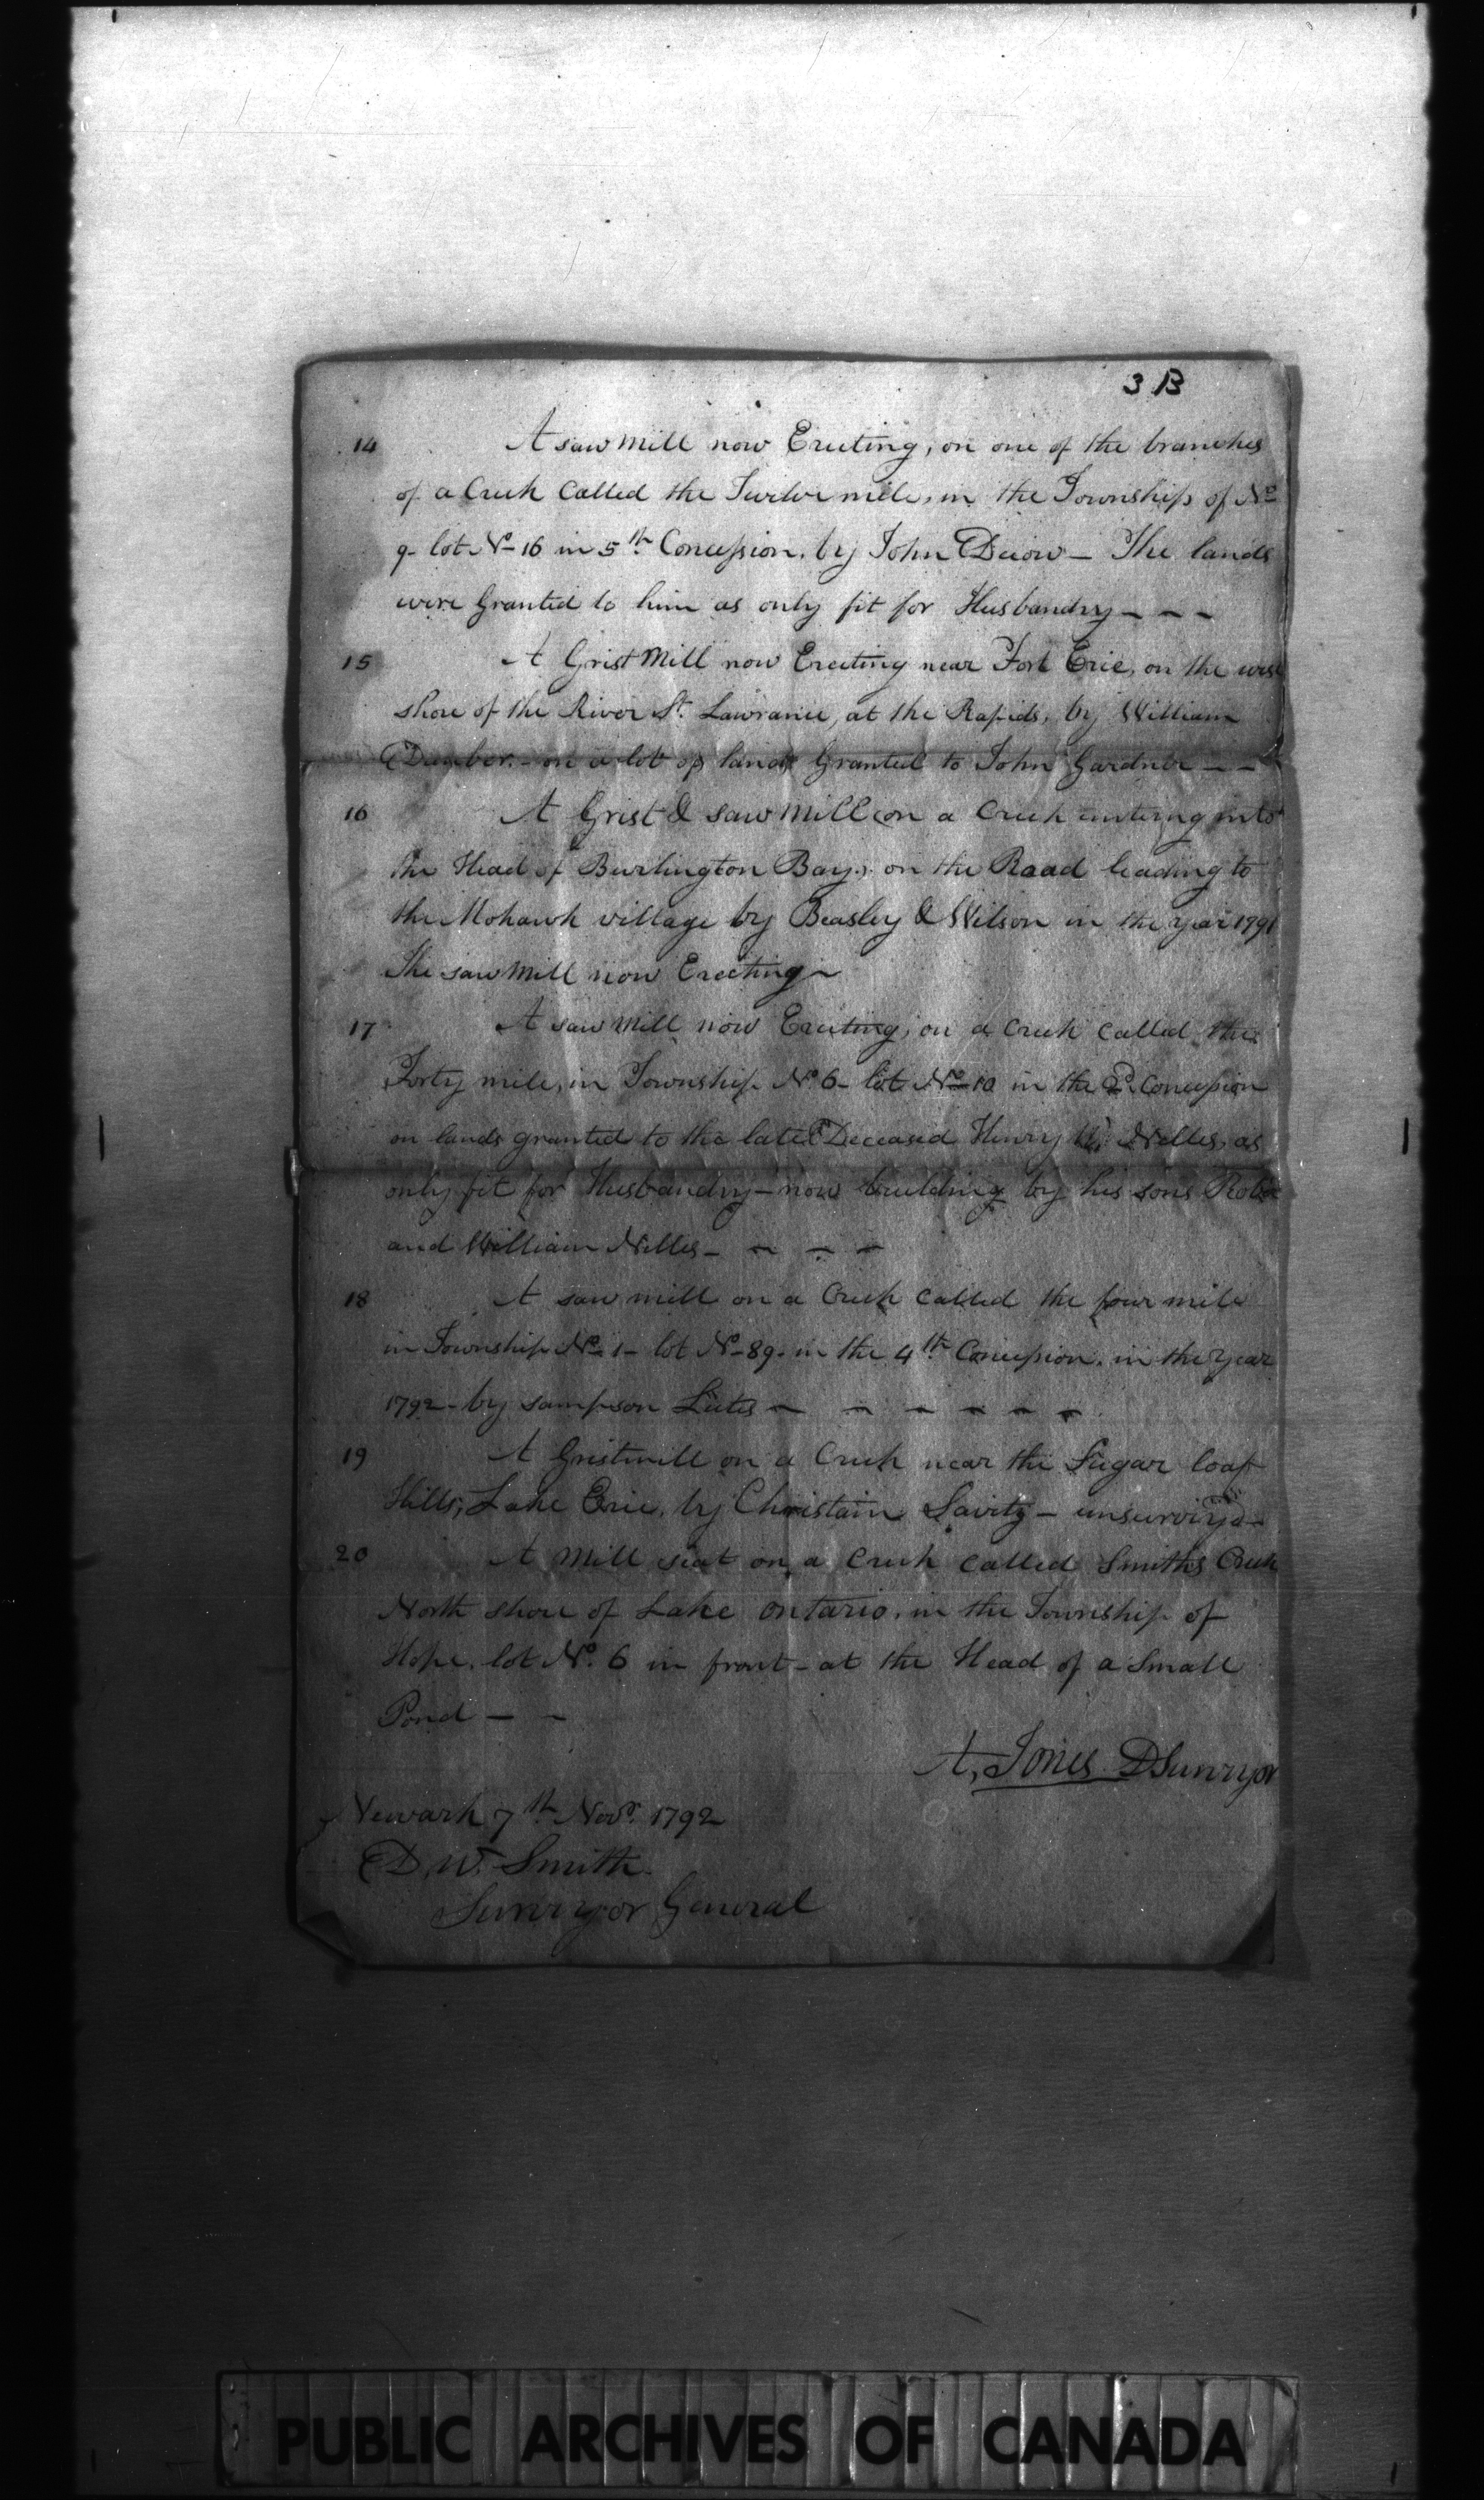 3 B
14 A saw mill now Erecting, on one of the branches
of a Creek Called the Twelve mile, in the Township of No
9 - lot No 16 in 5th Concession, by John Decow - The lands
were Granted to him as only fit for Husbandry - - -
15 A Grist Mill now Erecting near Fort Erie, on the west
shore of the River St. Lawrance, at the Rapids, by William
Dunbar - on a lot of land Granted to John Gardner - -
16 A Grist & saw mill on a Creek entering into
the Head of Burlington Bay, on the Road leading to
the Mohawk village by Beasley & Wilson in the year 1791
The saw mill now Erecting -
17 A saw mill now Erecting, on a Creek called the
Forty mile, in Township No 6 - lot No 10 in the 2d Concession
on lands granted to the late Deceased Henry Wm Nelles, as
only fit for Husbandry - now building by his sons Robt
and William Nelles - - - -
18 A saw mill on a Creek called the four mile
in Township No 1 - lot No - 89 - in the 4th Concession, in the year
1792 - by Sampson Lutes - - - - - -
19 A Gristmill on a Creek near the Sugar loaf
Hills, Lake Erie, by Christain Savitz - unsurvey'd -
20 A Mill seat on a Creek called Smiths Creek
North shore of Lake Ontario, in the Township of
Hope, lot No. 6 in front - at the Head of a Small
Pond - -
A, Jones DSurvyor
Newark 7th Novr. 1792
D. W. Smith
Surveyor General
PUBLIC ARCHIVES OF CANADA